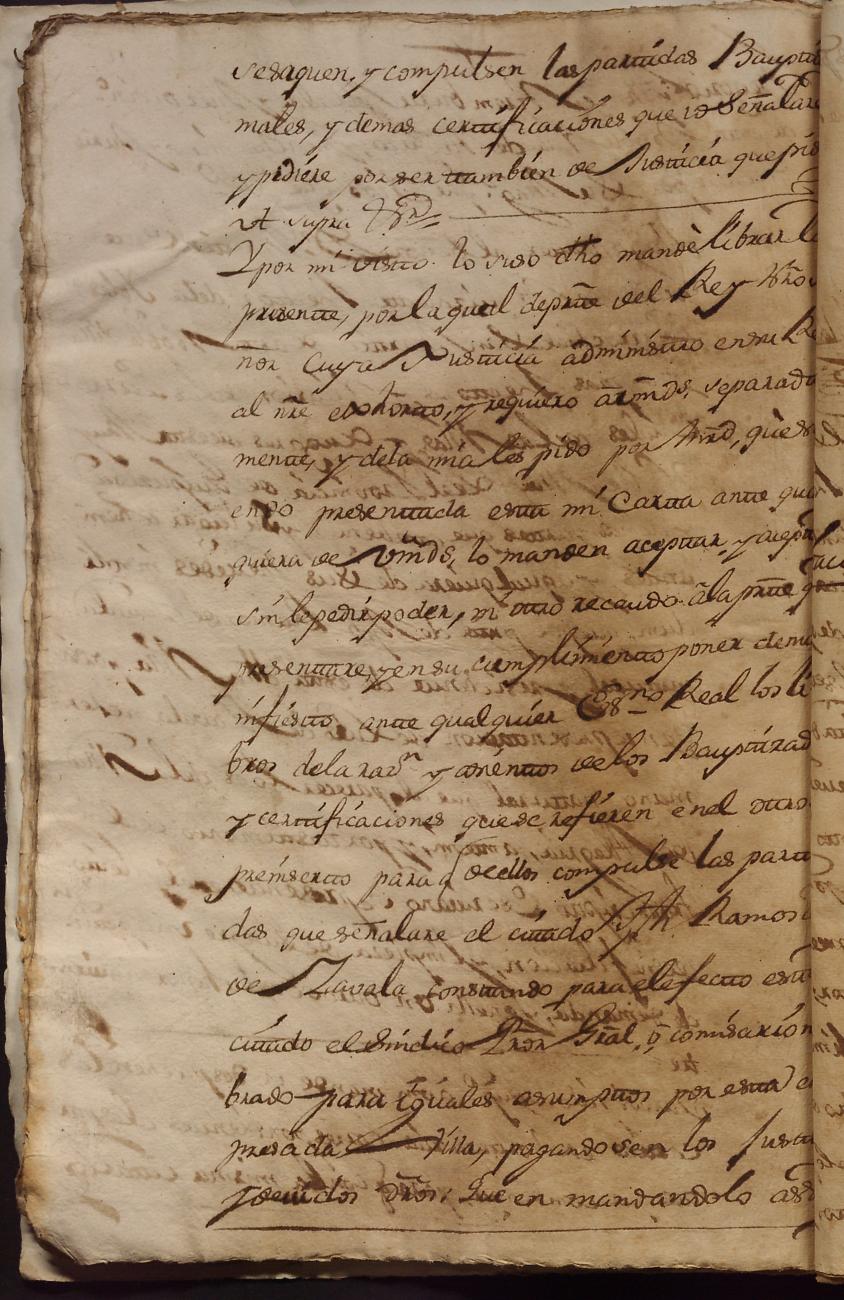 sesaquen, y compulsen las partidas Baupti
males, y demas certificaciones que io señalare
y pidiere por ser tambien de Justicia que pid
ut supra
Y por mi visto lo suso dho mandè librar la
presente, por la qual de parte del Rey Nro
ñor cuya Justicia administro en su Re
al nre exshorto, y requiero a Vmds, separada
mente, y dela mia les pido por Mrd, que si
endo presentada esta mi Carta ante qual
quiera de Vmds, lo manden aceptar, y acepten
sin le pedir poder, ni otro recaudo â la parte q
presentare, y en su cumplimiento poner de ma
nifiesto ante qualquier Essno Real los li
bros dela razn y asientos de los Bauptizad
y certificaciones que se refieren en el otro
preinserto para q de ellos compulse las parti
das que señalare el citado Ramos
de Zavala constando para el efecto estar
citado el Sindico Pror Gral, ô comisario n
brado para iguales asumptos por esta e
presada Villa, pagandosen los Justos
y devidos drõs: Que en mandandolo assi